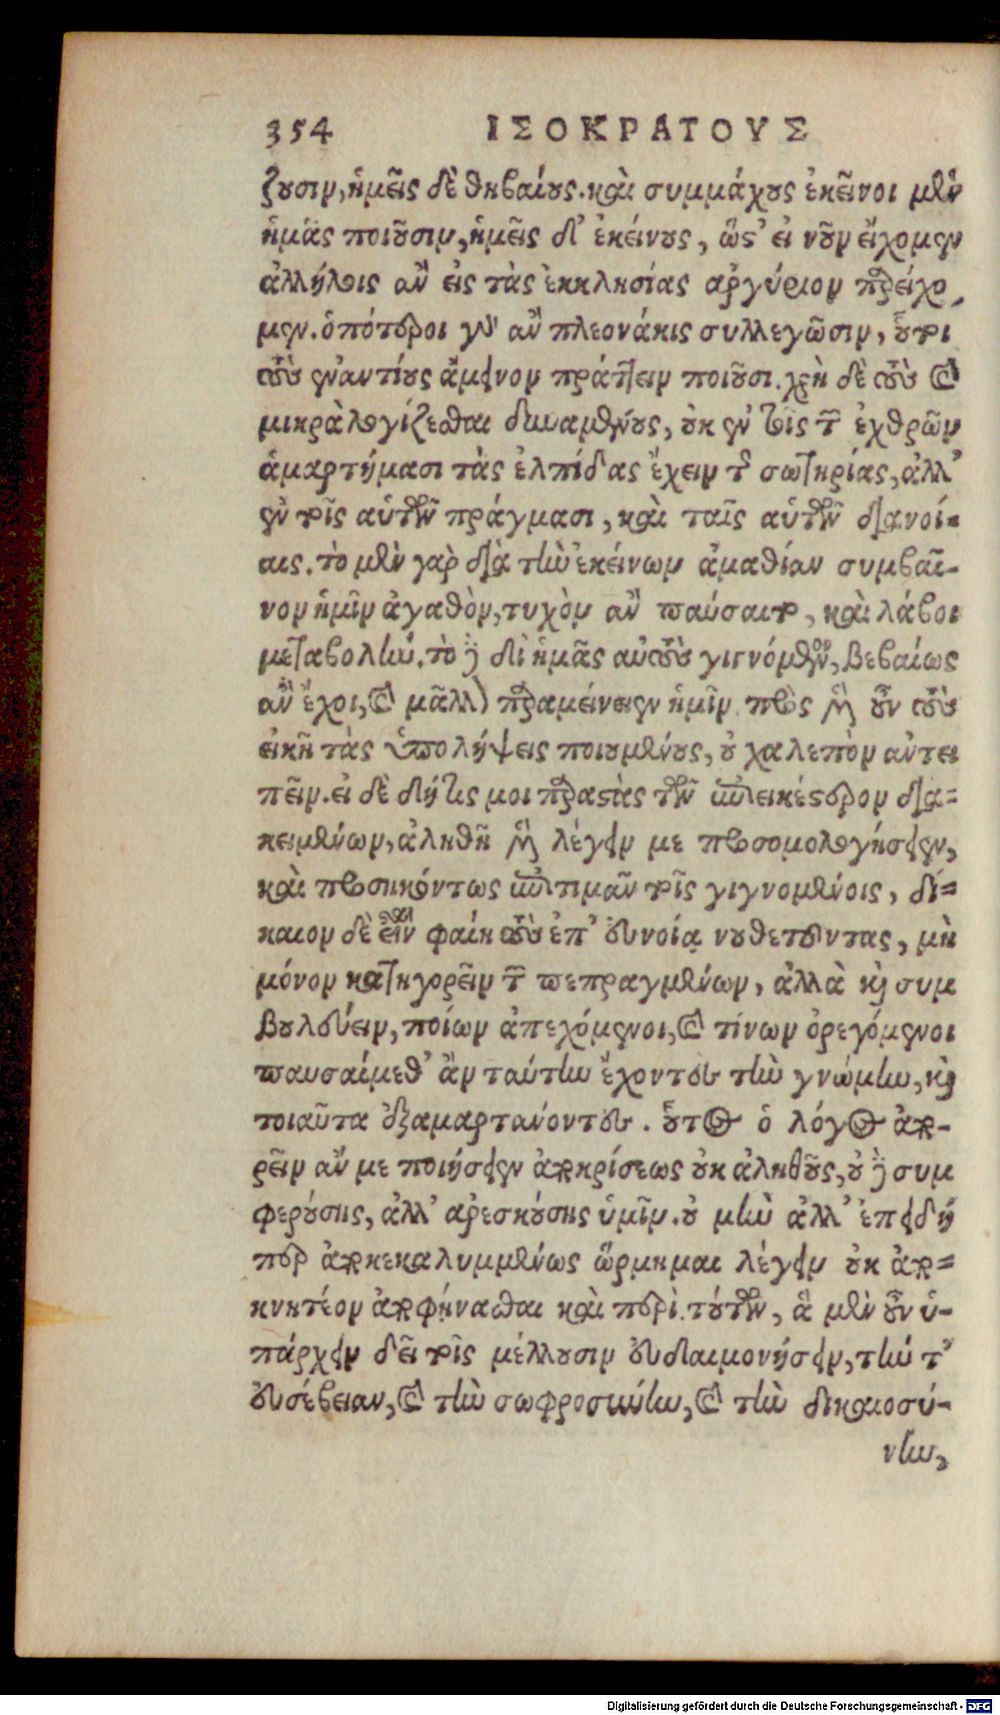 354 ΙΣΟΚΡΑΤΟΥΣ
ζουσιν, ἡμεῖς δὲ θηβαίους. καὶ συμμάχους ἐκεῖνοι μὲν
ἡμᾶς ποιοῦσιν, ἡμεῖς δ' ἐκείνους, ὥστ' εἰ νοῦν εἴχομεν
ἀλλήλοις ἂν εἰς τὰς ἐκκλησίας ἀργύριον παρείχο,
μεν. ὁπότεροι γὰρ ἂν πλεονάκις συλλεγῶσιν, οὗτοι
τοὺς ἐναντίους ἄμεινον πράττειν ποιοῦσι. χρὴ δὲ τοὺς καὶ
μικρὰ λογίζεσθαι δυναμένους, οὐκ ἐν τοῖς τῶν ἐχθρῶν
ἁμαρτήμασι τὰς ἐλπίδας ἔχειν τῆς σωτηρίας, ἀλλ'
ἐν τοῖς αὑτῶν πράγμασι, καὶ ταῖς αὑτῶν διανοί-
αις. τὸ μὲν γὰρ διὰ τὴν ἐκείνων ἀμαθίαν συμβαῖ-
νον ἡμῖν ἀγαθὸν, τυχὸν ἂν παύσαιτο, καὶ λάβοι
μεταβολήν. τὸ δὲ δι' ἡμᾶς αὐτοὺς γιγνόμενον, βεβαίως
ἂν ἔχοι, καὶ μᾶλλον παραμένειεν ἡμῖν. πρὸς μὲν οὖν τοὺς
εἰκῆ τὰς ὑπολήψεις ποιουμένους, οὐ χαλεπὸν ἀντει
πεῖν. εἰ δὲ δή τις μοι παραστὰς τῶν ἐπιεικέστερον δια-
κειμένων, ἀληθῆ μὲν λέγειν με προσομολογήσειεν,
καὶ προσηκόντως ἐπιτιμᾶν τοῖς γιγνομένοις, δί-
καιον δὲ εἶναι φαίη τοὺς ἐπ' εὐνοίᾳ νουθετοῦντας, μὴ
μόνον κατηγορεῖν τῶν πεπραγμένων, ἀλλὰ καὶ συμ
βουλεύειν, ποίων ἀπεχόμενοι, καὶ τίνων ὀρεγόμενοι
παυσαίμεθ' ἂν ταύτην ἔχοντες τὴν γνώμην, καὶ
τοιαῦτα ἐξαμαρτάνοντες. οὗτος ὁ λόγος ἀπο-
ρεῖν ἄν με ποιήσειεν ἀποκρίσεως οὐκ ἀληθοῦς, οὐδὲ συμ
φερούσης, ἀλλ' ἀρεσκούσης ὑμῖν. οὐ μὴν ἀλλ' ἐπειδή
περ ἀποκεκαλυμμένως ὥρμημαι λέγειν οὐκ ἀπο-
κνητέον ἀποφήνασθαι καὶ περὶ τούτων, ἃ μὲν οὖν ὑ-
πάρχειν δεῖ τοῖς μέλλουσιν εὐδαιμονήσειν, τήν τ'
εὐσέβειαν, καὶ τὴν σωφροσύνην, καὶ τὴν δικαιοσύ-
νην,
Digitalisierung gefördert durch die Deutsche Forschungsgemeinschaft - DFG